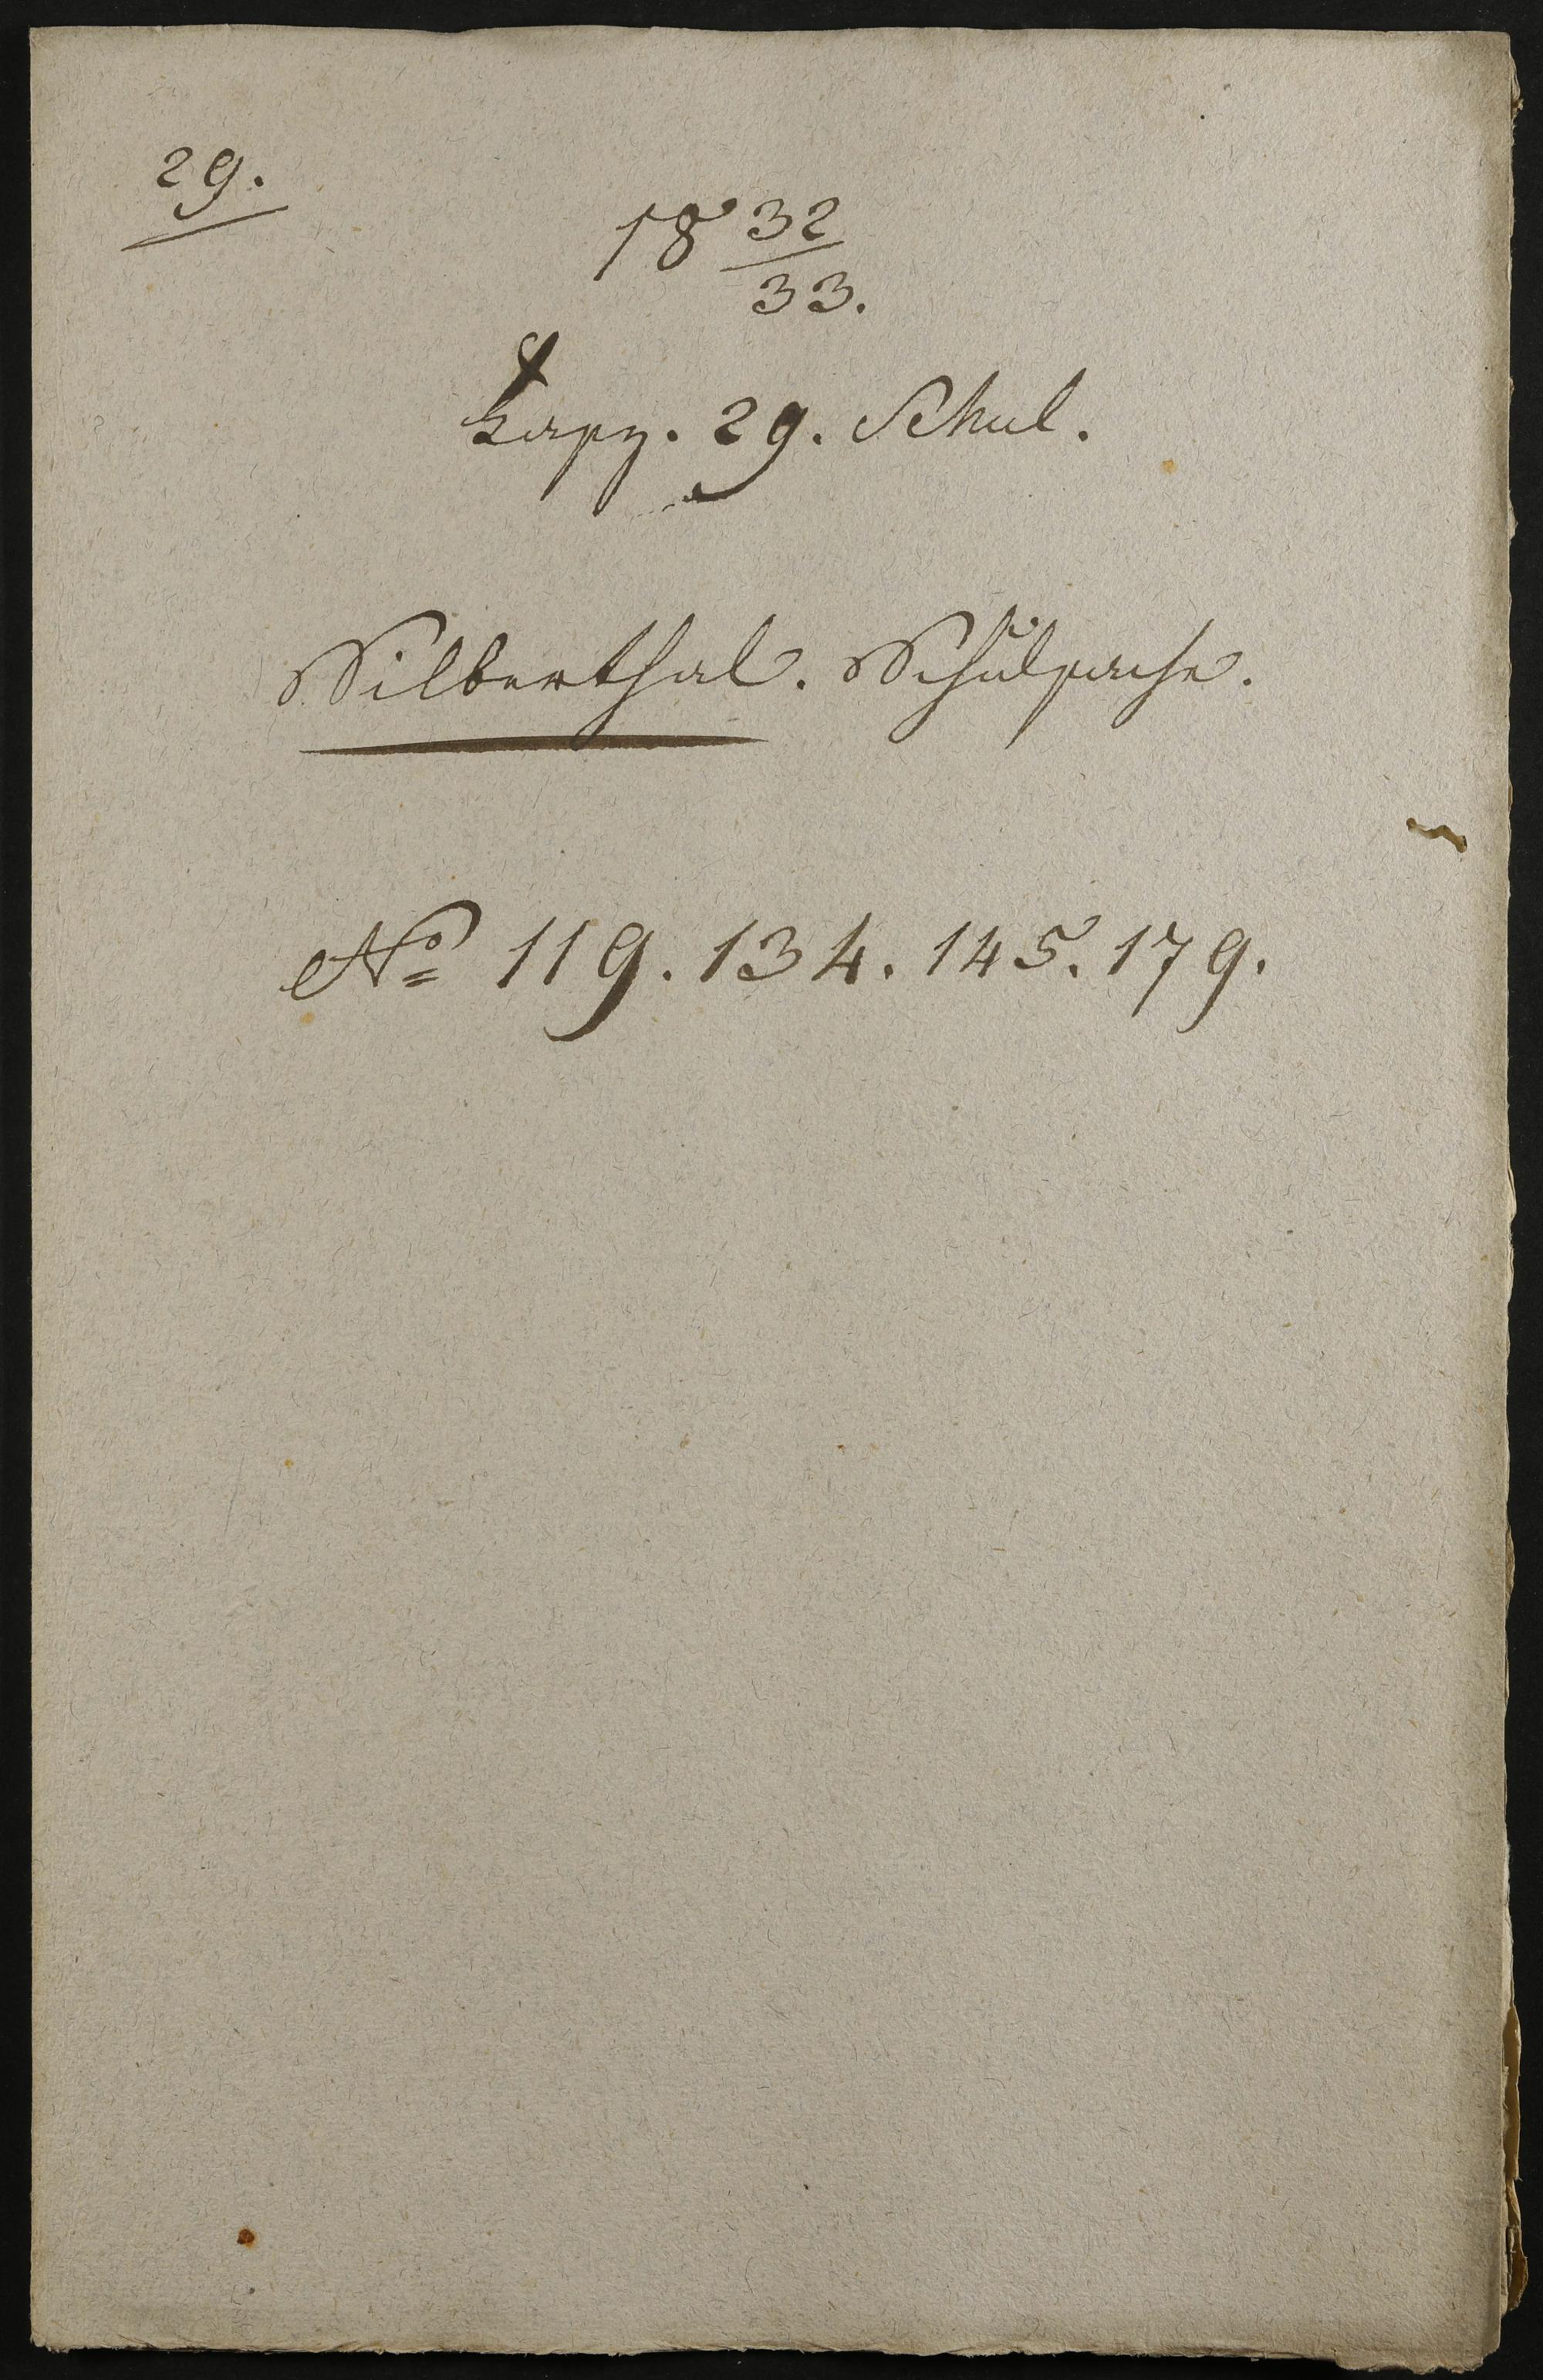 29.
18 32/33.
Fasz. 29. Schul.
Silberthal. Schulsache.
No 119. 134. 145. 179.